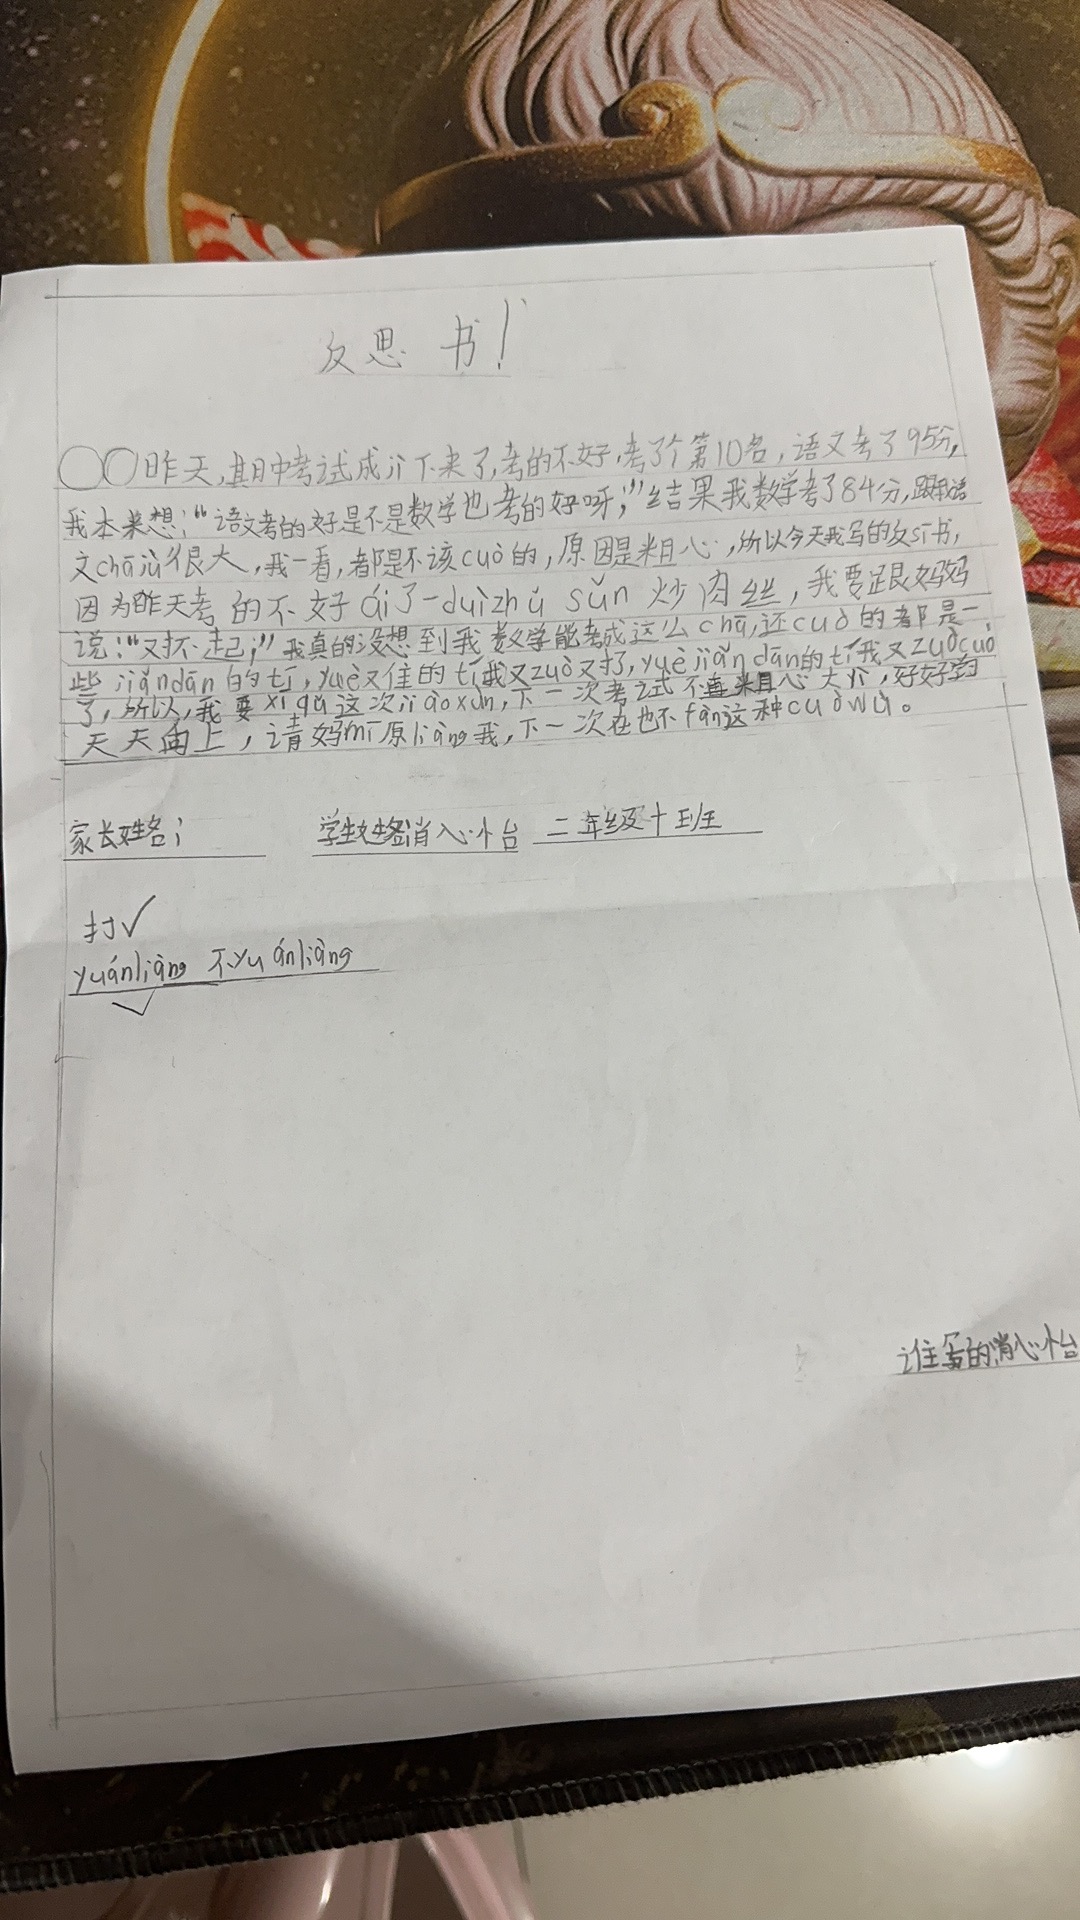 反思书!
○○昨天,其日中考试成爪下来了,考的不好,考了个第10名,语文考了95分,
我本来想:“语文考的好是不是数学也考的好呀,”结果我数学考了84分,跟我语
文chājù很大,我一看,都是不该cuò的,原因是粗心,所以今天我写的反sī书,
因为昨天考的不好ái了一duìzhú sǔn炒肉丝,我要跟妈妈
说:“又抔起;”我真的没想到我数学能考成这么chā,还cuò的都是一
些jiǎndān的tí,yuè又住的tí我又zuò又打,yuèjiǎndān的tí我又zuòcuò
了,所以,我要xīqǔ这次jiàoxùn,下一次考试不再粗心大爪,好好学
天天向上,请妈mī原liàng我,下一次在也不fàn这种cuòwù。
家长姓名: 学生姓名消心怡 二年级十班
打✓
yuánliàng 不yuánliàng
✓
谁写的消心怡